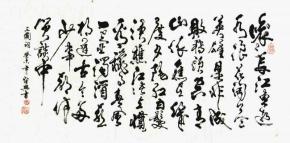 滚滚長江東逝
水浪花淘盡
英雄是非成
敗轉頭空青
山依舊在幾
度夕陽紅白髮
漁樵江渚上慣
看秋月春風
一壺濁酒喜
相逢古今多
少事都付
笑談中